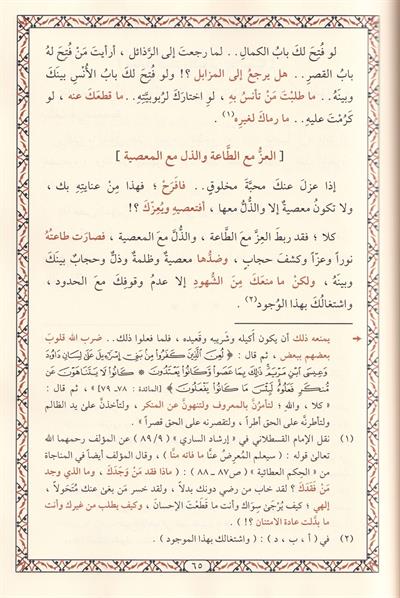 لو فُتِحَ لكَ بابُ الكمالِ.. لما رجعتَ إلى الرَّذائلِ ، أرأيتَ مَنْ فُتِحَ لهُ
بابُ القصرِ.. هل يرجعُ إلى المزابلِ ؟! ولو فُتِحَ لكَ بابُ الأُنْسِ بينَكَ
وبينَهُ.. ما طلبْتَ مَنْ تأنسُ بهِ ، لوِ اختارَكَ لربوبيَّتِهِ.. ما قطعَكَ عنه ، لو
كَرُمْتَ عليهِ.. ما رماكَ لغيرِهِ(١) .
[ العزُّ معَ الطَّاعة والذل معَ المعصية ]
إذا عزلَ عنكَ محبَّةَ مخلوقٍ.. فافرَحْ ؛ فهذا مِنْ عنايتِهِ بك ،
ولا تكونُ معصيةٌ إلا والذُّلُّ معها ، أفتعصيهِ ويُعِزُّكَ ؟!
كلا ؛ فقد ربطَ العِزَّ معَ الطَّاعة ، والذُّلَّ معَ المعصيةِ ، فصارَت طاعتُهُ
نوراً وعزّاً وكشفَ حجابٍ ، وضدُّها معصيةً وظلمةً وذلّ وحجابٌ بينَكَ
وبينَهُ ، ولكنْ ما منعَكَ مِنَ الشُّهودِ إلا عدمُ وقوفِكَ معَ الحدودِ ،
واشتغالُكَ بهذا الوُجودِ(٢) .
يمنعه ذلك أن يكون أكيله وشريبه وقعيده ، فلما فعلوا ذلك.. ضرب الله قلوبَ
بعضهم ببعض ، ثم قال : ﴿ لُعِنَ الَّذِينَ كَفَرُوا مِنْ بَنِي إِسْرَائِيلَ عَلَى لِسَانِ دَاوُدَ
وَعِيسَى ابْنِ مَرْيَمَ ذَلِكَ بِمَا عَصَوْا وَكَانُوا يَعْتَدُونَ * كَانُوا لَا يَتَنَاهَوْنَ عَنْ
مُنْكَرٍ فَعَلُوهُ لَبِئْسَ مَا كَانُوا يَفْعَلُونَ ﴾ [المائدة : ٧٨ـ ٧٩] » ، ثم قال :
« كلا ، واللهِ ؛ لتأمرُنَّ بالمعروف ولتنهوُنَّ عن المنكر ، ولتأخذنَّ على يدِ الظالم
ولتأطرنَّه على الحق أطراً ، ولتقصرنه على الحق قصراً » .
(١) نقل الإمام القسطلاني في « إرشاد الساري » ( ٨٩/٩ ) عن المؤلف رحمهما الله
تعالىٰ قوله : ( سيعلم المُعرِضُ عنَّا ما فاته منَّا ) ، وقال المؤلف أيضاً في المناجاة
من « الحِكم العطائية » ( ص٨٧ـ ٨٨ ) : ( ماذا فقد مَنْ وَجَدَكَ ، وما الذي وجد
مَنْ فَقَدَكَ ؟ لقد خاب من رضي دونك بدلاً ، ولقد خسر مَن بغى عنك مُتَحَولاً ،
إلهي ؛ كيف يُرْجَىٰ سِواك وأنت ما قَطَعْتَ الإحسانَ ، وكيف يطلب من غيرك وأنت
ما بدَّلت عادة الامتنان ؟! ) .
(٢) في ( أ ، ب ، د ) : ( واشتغالك بهذا الموجود ) .
٦٥